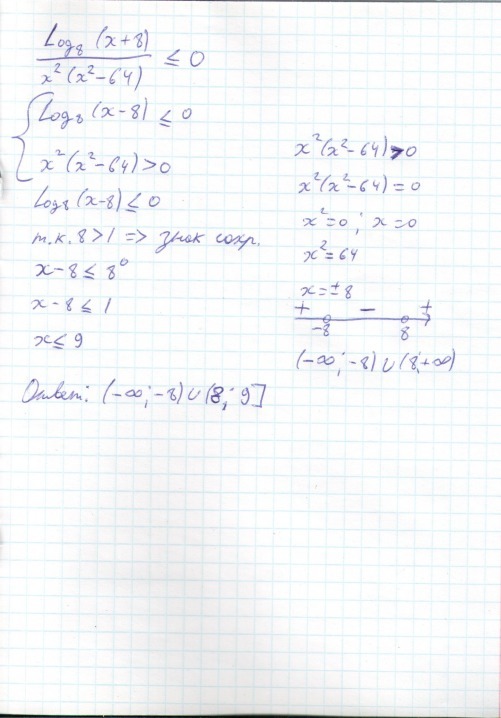 Log₈ (x+8) / x²(x²-64) ≤ 0
{ Log₈ (x-8) ≤ 0
x²(x²-64)>0
Log₈ (x-8) ≤ 0
т.к. 8>1 => знак сохр.
x-8 ≤ 8⁰
x-8 ≤ 1
x ≤ 9
x²(x²-64)>0
x²(x²-64)=0
x²=0; x=0
x²=64
x=±8
+ - +
-8 8
(-∞; -8) ∪ (8; +∞)
Ответ: (-∞; -8) ∪ (8; 9]